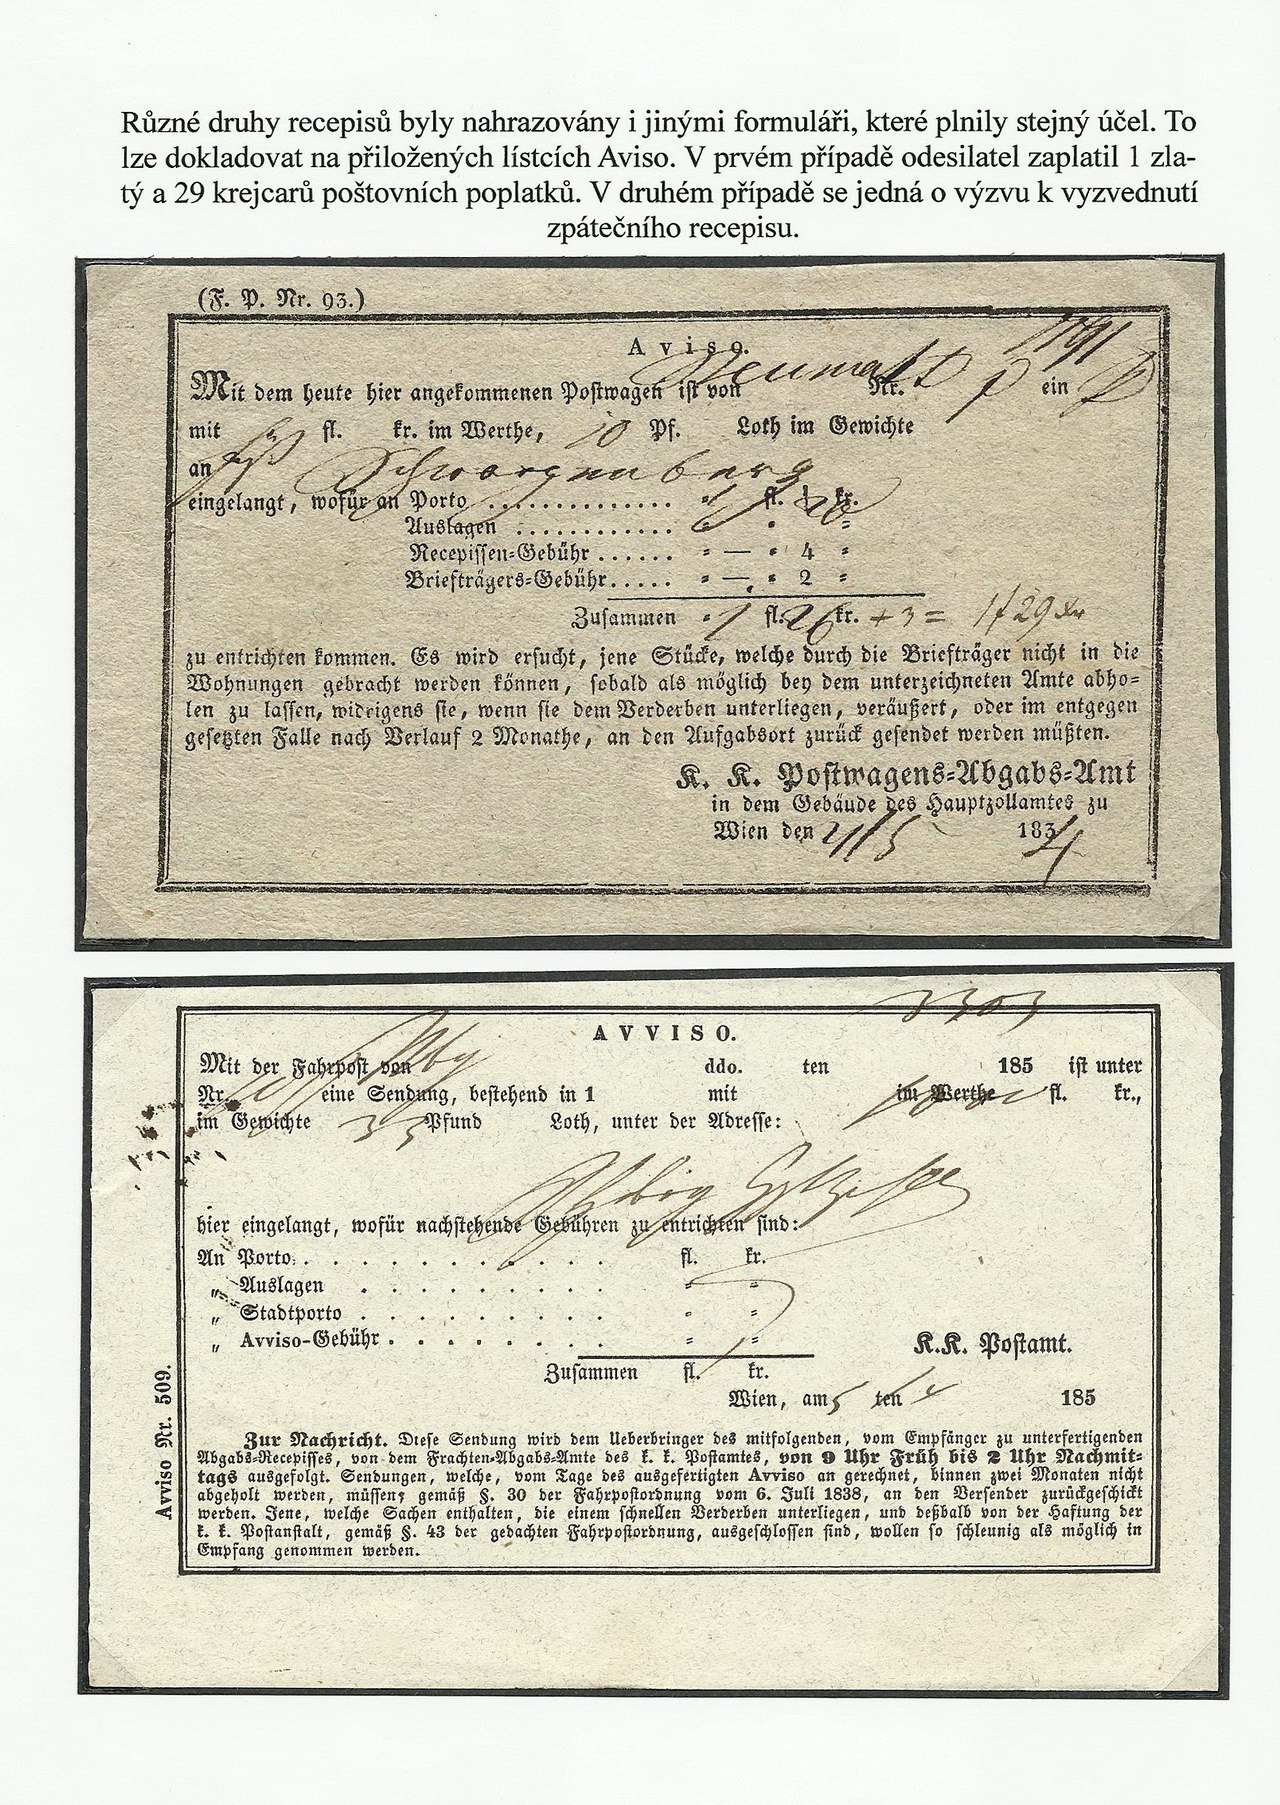 Různé druhy recepisů byly nahrazovány i jinými formuláři, které plnily stejný účel. To
lze dokladovat na přiložených lístcích Aviso. V prvém případě odesilatel zaplatil 1 zla-
tý a 29 krejcarů poštovních poplatků. V druhém případě se jedná o výzvu k vyzvednutí
zpátečního recepisu.
(F. P. Nr. 93.)
Aviso.
Mit dem heute hier angekommenen Postwagen ist von Nr. ein
mit fl. kr. im Werthe, 10 Pf. Loth im Gewichte
an Schwarzenberg
eingelangt, wofür an Porto .............. fl. kr.
Auslagen ............
Recepissen-Gebühr ...... " — " 4 "
Briefträgers-Gebühr..... " — " 2 "
Zusammen 1 fl. 26 kr. + 3 = 1 f 29 Xr
zu entrichten kommen. Es wird ersucht, jene Stücke, welche durch die Briefträger nicht in die
Wohnungen gebracht werden können, sobald als möglich bey dem unterzeichneten Amte abho=
len zu lassen, widrigens sie, wenn sie dem Verderben unterliegen, veräußert, oder im entgegen
gesetzten Falle nach Verlauf 2 Monathe, an den Aufgabsort zurück gesendet werden müßten.
K. K. Postwagens=Abgabs=Amt
in dem Gebäude des Hauptzollamtes zu
Wien den 183
3303
AVVISO.
Mit der Fahrpost von ddo. ten 185 ist unter
Nr. eine Sendung, bestehend in 1 mit im Werthe fl. kr.,
im Gewichte 33 Pfund Loth, unter der Adresse:
hier eingelangt, wofür nachstehende Gebühren zu entrichten sind:
An Porto. . . . . . . . . . . fl. kr.
„ Auslagen . . . . . . . . . " "
„ Stadtporto . . . . . . . . . " "
„ Avviso-Gebühr . . . . . . . . " "
K.K. Postamt.
Zusammen fl. kr.
Wien, am 5 ten 185
Avviso Nr. 509.
Zur Nachricht. Diese Sendung wird dem Ueberbringer des mitfolgenden, vom Empfänger zu unterfertigenden
Abgabs-Recepisses, von dem Frachten-Abgabs-Amte des k. k. Postamtes, von 9 Uhr Früh bis 2 Uhr Nachmit=
tags ausgefolgt. Sendungen, welche, vom Tage des ausgefertigten Avviso an gerechnet, binnen zwei Monaten nicht
abgeholt werden, müssen, gemäß §. 30 der Fahrpostordnung vom 6. Juli 1838, an den Versender zurückgeschickt
werden. Jene, welche Sachen enthalten, die einem schnellen Verderben unterliegen, und deßhalb von der Haftung der
k. k. Postanstalt, gemäß §. 43 der gedachten Fahrpostordnung, ausgeschlossen sind, wollen so schleunig als möglich in
Empfang genommen werden.